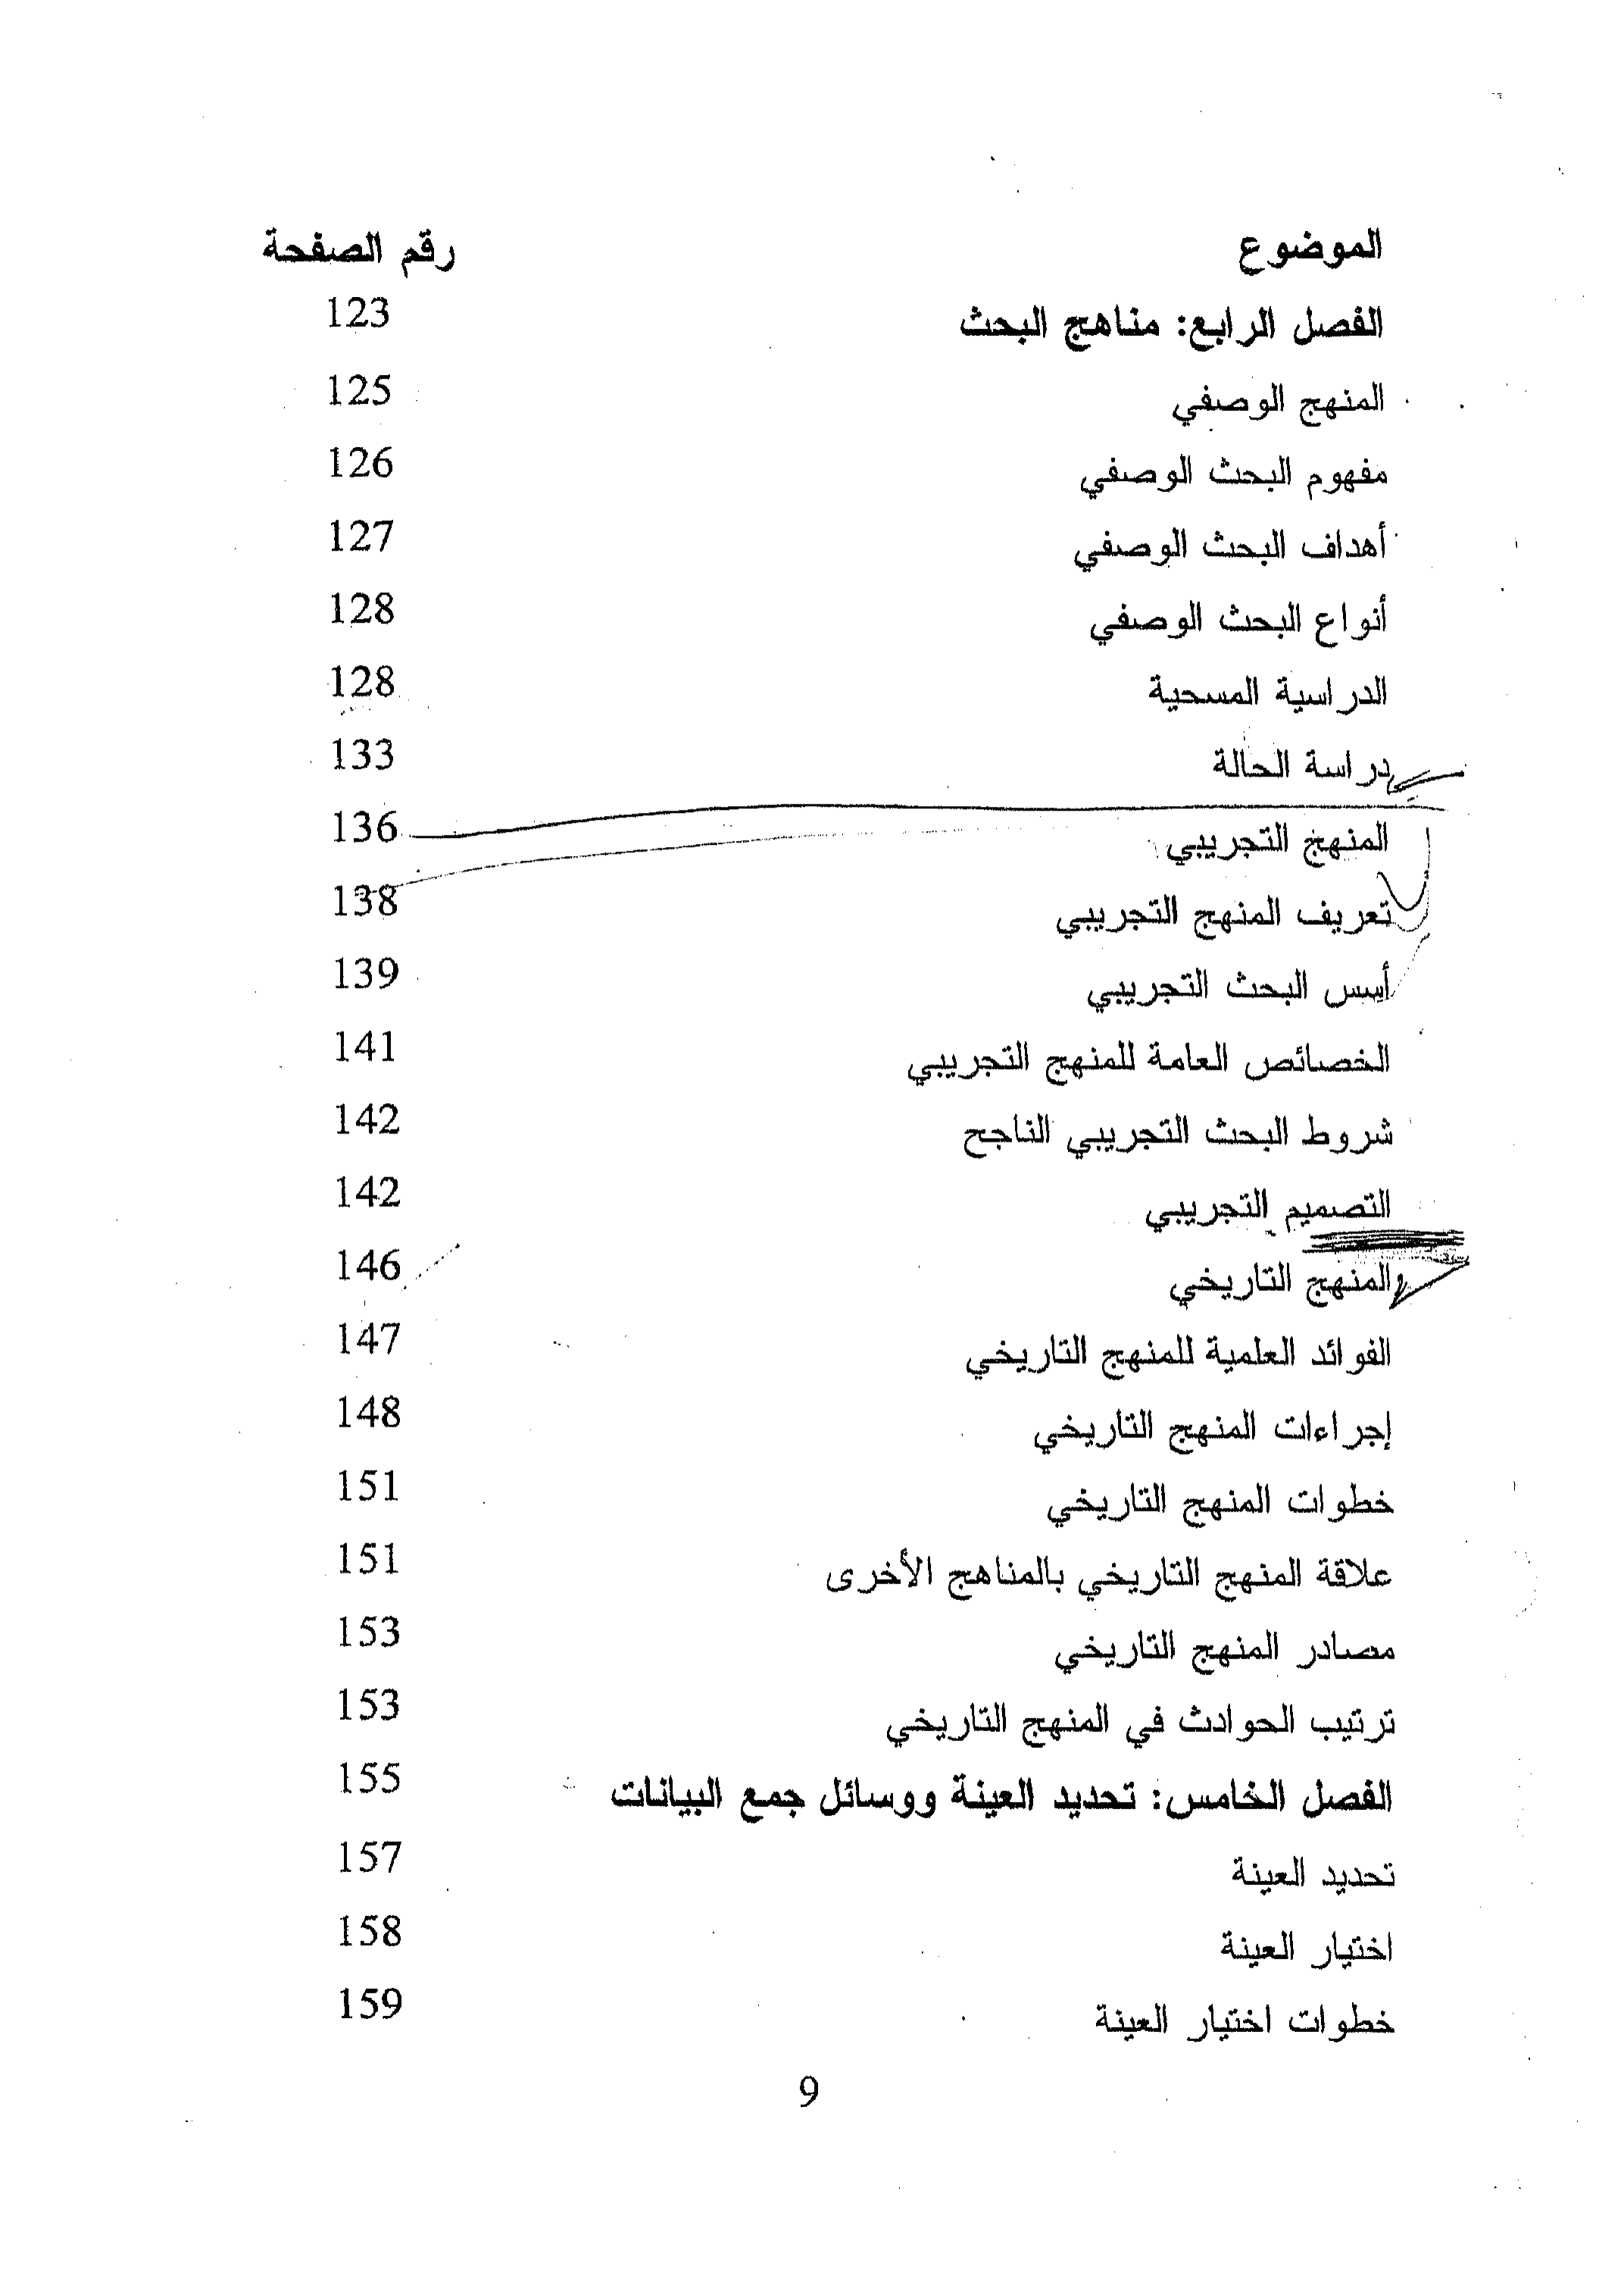 الموضوع رقم الصفحة
الفصل الرابع: مناهج البحث 123
المنهج الوصفي 125
مفهوم البحث الوصفي 126
أهداف البحث الوصفي 127
أنواع البحث الوصفي 128
الدراسية المسحية 128
دراسة الحالة 133
المنهج التجريبي 136
تعريف المنهج التجريبي 138
أسس البحث التجريبي 139
الخصائص العامة للمنهج التجريبي 141
شروط البحث التجريبي الناجح 142
التصميم التجريبي 142
المنهج التاريخي 146
الفوائد العلمية للمنهج التاريخي 147
إجراءات المنهج التاريخي 148
خطوات المنهج التاريخي 151
علاقة المنهج التاريخي بالمناهج الأخرى 151
مصادر المنهج التاريخي 153
ترتيب الحوادث في المنهج التاريخي 153
الفصل الخامس: تحديد العينة ووسائل جمع البيانات 155
تحديد العينة 157
اختيار العينة 158
خطوات اختيار العينة 159
9